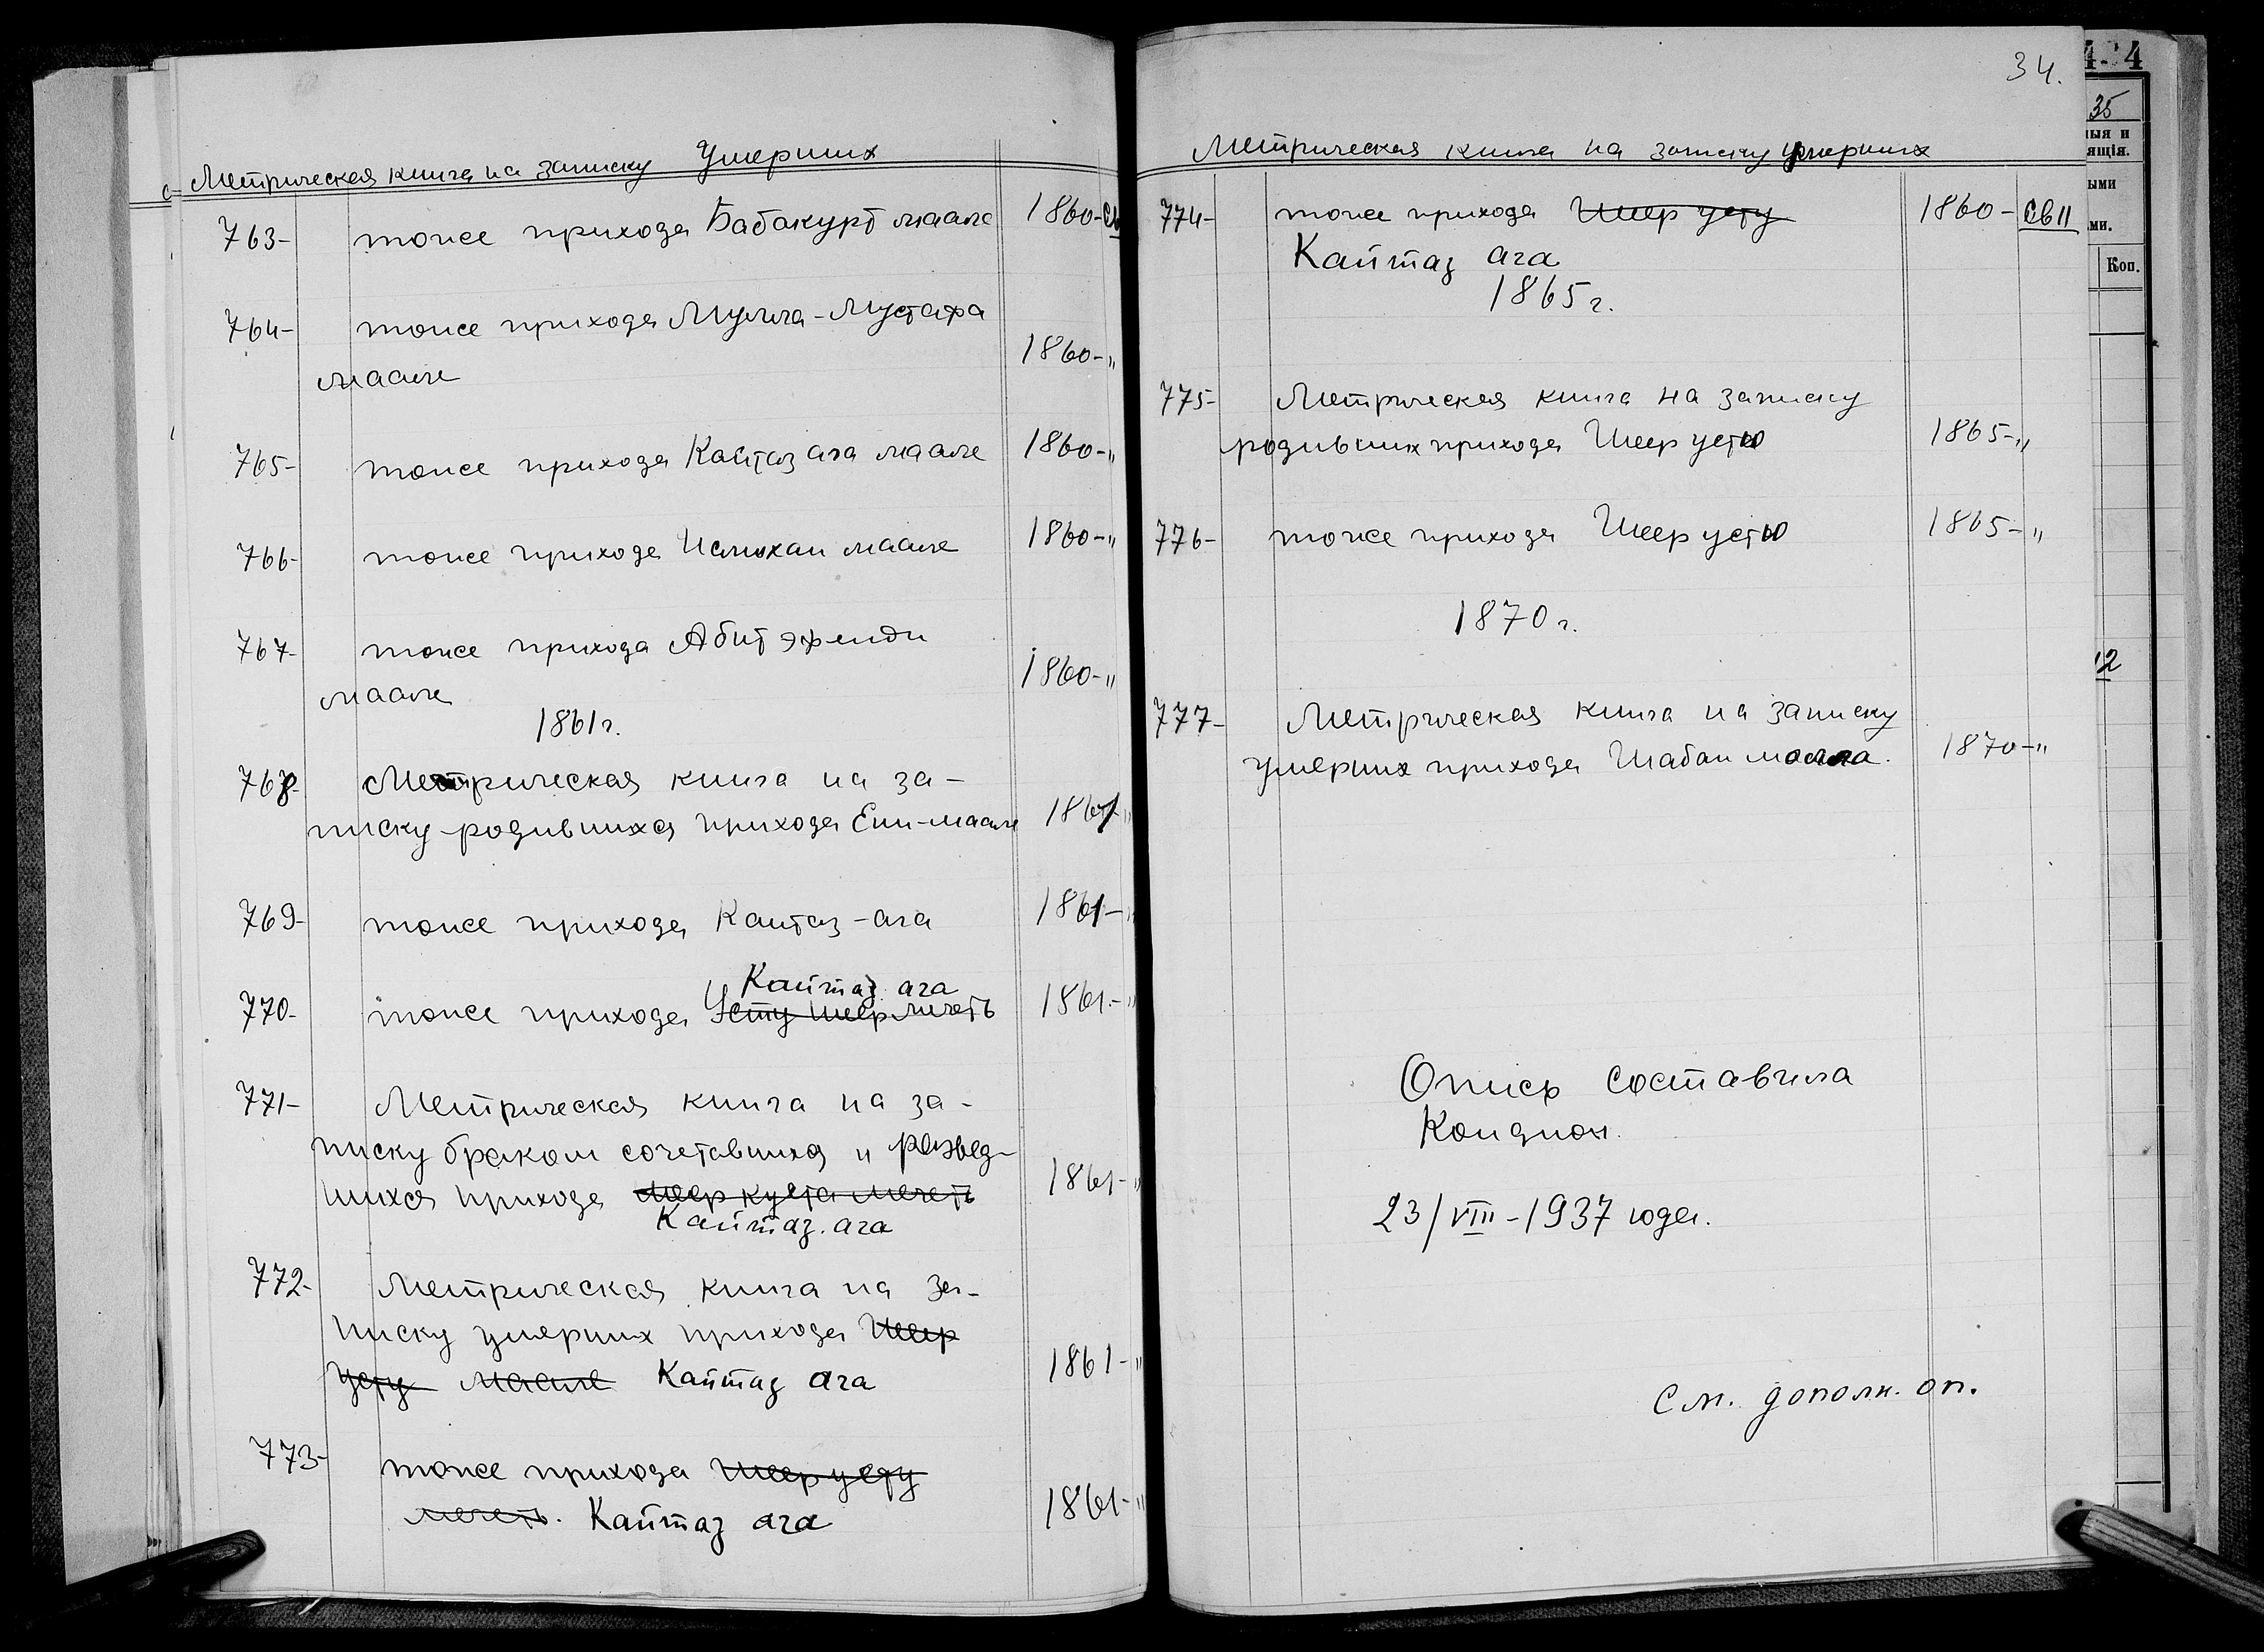 Метрическая книга на записку Умерших
763- тоже прихода Бабакурд маале 1860- св
764- тоже прихода Мулла-Мустафа
маале 1860-"
765- тоже прихода Кайтаз ага маале 1860-"
766- тоже прихода маале 1860-"
767- тоже прихода Абит эфенди
маале 1860-"
1861 г.
768- Метрическая книга на за-
писку родившихся прихода Ени-маале 1861-"
769- тоже прихода Кайтаз-ага 1861-"
Кайтаз ага
770- тоже прихода Усту Шеер мечеть 1861-"
771- Метрическая книга на за-
писку браком сочетавшихся и развед-
шихся прихода мечеть 1861-"
Кайтаз. ага
772- Метрическая книга на за-
писку умерших прихода Шеер
усту маале Кайтаз ага 1861-"
773- тоже прихода Шеер усту
мечеть. Кайтаз ага 1861-"
34.
Метрическая книга на записку умерших
774- тоже прихода Шеер усту 1860- св 11
Кайтаз ага
1865 г.
775- Метрическая книга на записку
родивших прихода Шеер устю 1865-"
776- тоже прихода Шеер устю 1865-"
1870 г.
777- Метрическая книга на записку
умерших прихода Шабан 1870-"
Опись составила
23/VIII-1937 года.
См. дополн. оп.
4
35
ыя и
ящія.
ыми
ми.
Коп.
12